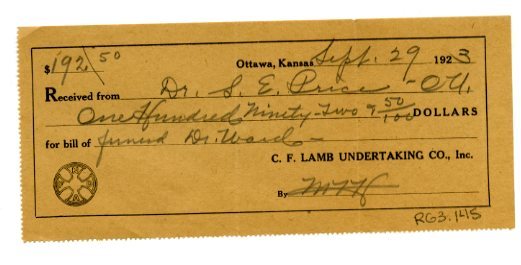 $192 50
Ottawa, Kansas Sept. 29 1923
Received from Dr. S. E. Price - O.U.
One Hundred Ninety-Two & 50/100 DOLLARS
for bill of funeral Dr. Ward -
C. F. LAMB UNDERTAKING CO., Inc.
By
RG3.145